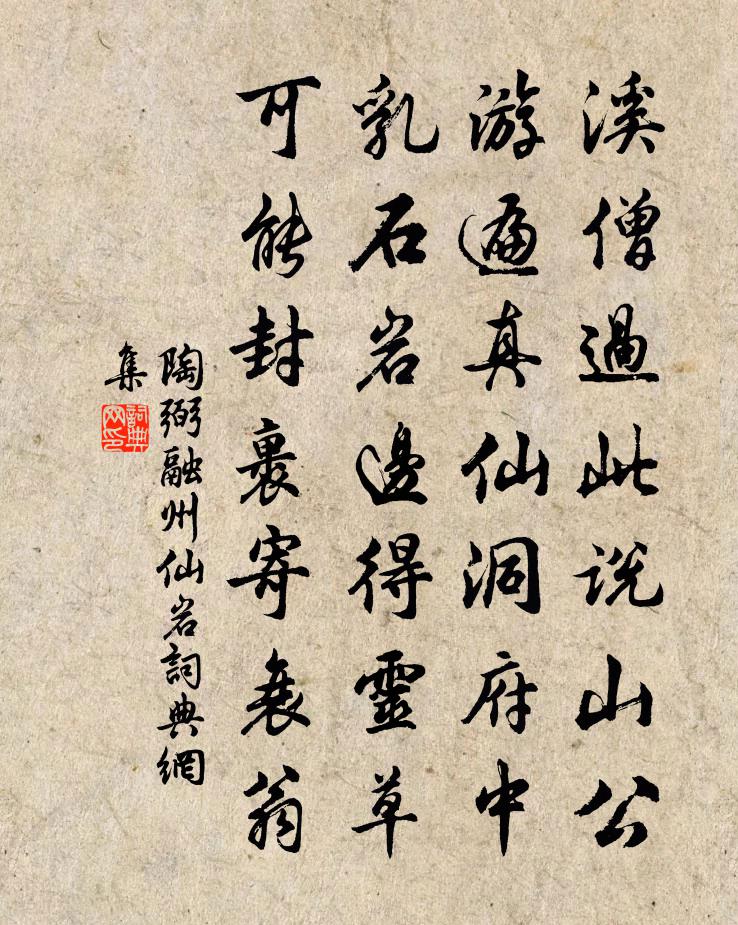 溪僧過此説山公
游遍真仙洞府中
乳石岩邊得靈草
可能封裹寄衰翁
陶弼融州仙岩詞典網
集
詞典
网印